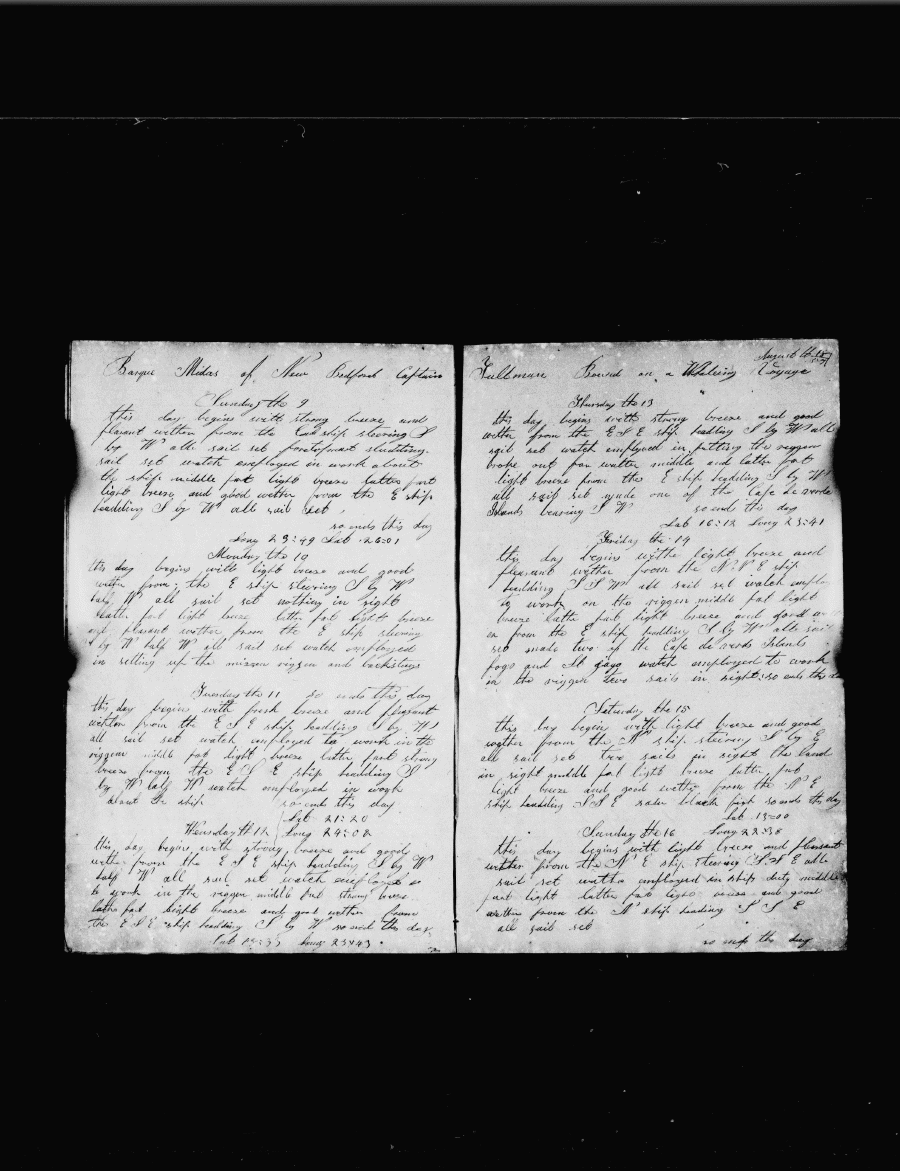 Barque Midas of New Bedford Captain
Sunday the 9
this day begins with strong breeze and
plasant wether from the East ship steering S
by W all sail set foretopmast studding
sail set watch employed in work about
the ship middle part light breeze latter part
light breeze and good wether from the E ship
headding S by W all sail set
so ends this day
Long 23:49 Lat 26:01
Monday the 10
this day begins with light breeze and good
wether from the E ship steering S by W
half W all sail set nothing in sight
latter part light breeze
and plasant wether from the E ship steering
S by W half W all sail set watch employed
in setting up the mizzen riggen and backstays
Tuesday the 11 so ends this day
this day begins with fresh breeze and plasant
wether from the E S E ship headding S by W
all sail set watch employed to work in the
riggen middle part light breeze latter part strong
breeze from the E S E ship headding S
by W half W watch employed in work
about the ship so ends this day
Lat 21:20
Wensday th 12 Long 24:08
this day begins with strong breeze and good
wether from the E S E ship headding S by W
half W all sail set watch employed
to work in the riggen middle part strong breeze
latter part light breeze and good wether from
the E S E ship headding S by W so ends this day
Long 23:43
August th
Fultmare Bound on a Whaleing Voyage
Thursday the 13
this day begins with strong breeze and good
wether from the E S E ship headding S by W all
sail set watch employed in fitting the riggen
broke out for watter middle and latter part
light breeze from the E ship headding S by W
all sail set made one of the Cape de verde
Islands bearing S W so ends this day
Lat 16:12 Long 23:41
Friday the 14
this day begins withe light breeze and
pleasant wether from the N N E ship
headding S S W all sail set watch employ
to work on the riggen middle part light
breeze latter part light breeze and good
from the E ship headding S by W all sail
set made two of the Cape de verds Islands
fogo and St jago watch employed to work
in the riggen two sails in sight so ends this
Saturday the 15
this day begins with light breeze and good
wether from the N ship steering S by E
all sail set two sails in sight the land
in sight middle part light breeze latter part
light breeze and good wether from the N E
ship headding S S E saw black fish so ends this day
Lat 13:00
Sunday the 16 Long 22:38
this day begins with light breeze and pleasant
wether from the N E ship steering S S E all
sail set watch employed in ship duty middle
part light latter part light breeze and good
wether from the N ship heading S S E
all sail set
so ends the day